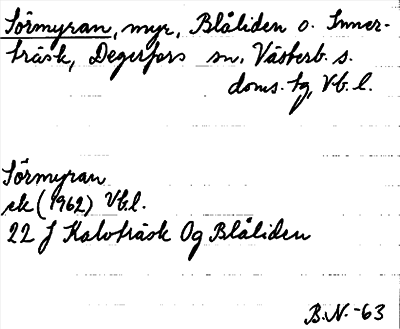 Sörmyran, myr, Blåliden o. Inner-
träsk, Degerfors sn, Västerb. s.
doms. tg, Vb. l.
Sörmyran
ek (1962) Vb.l.
22 J Kalvträsk Og Blåliden
B.N.-63